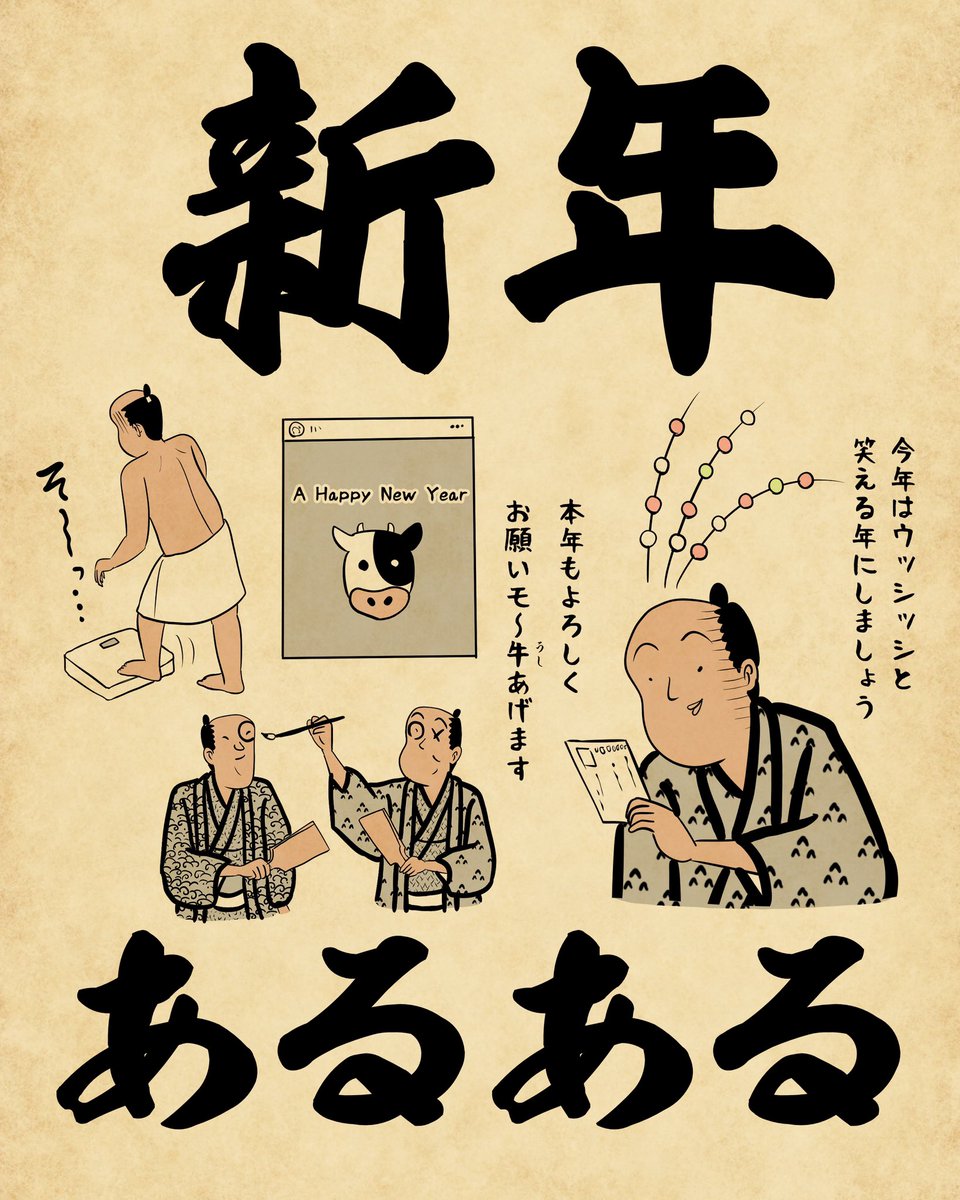 新年
そ〜っ…
A Happy New Year
今年はウッシッシと
笑える年にしましょう
本年もよろしく
お願いモ〜牛あげます
うし
あるある